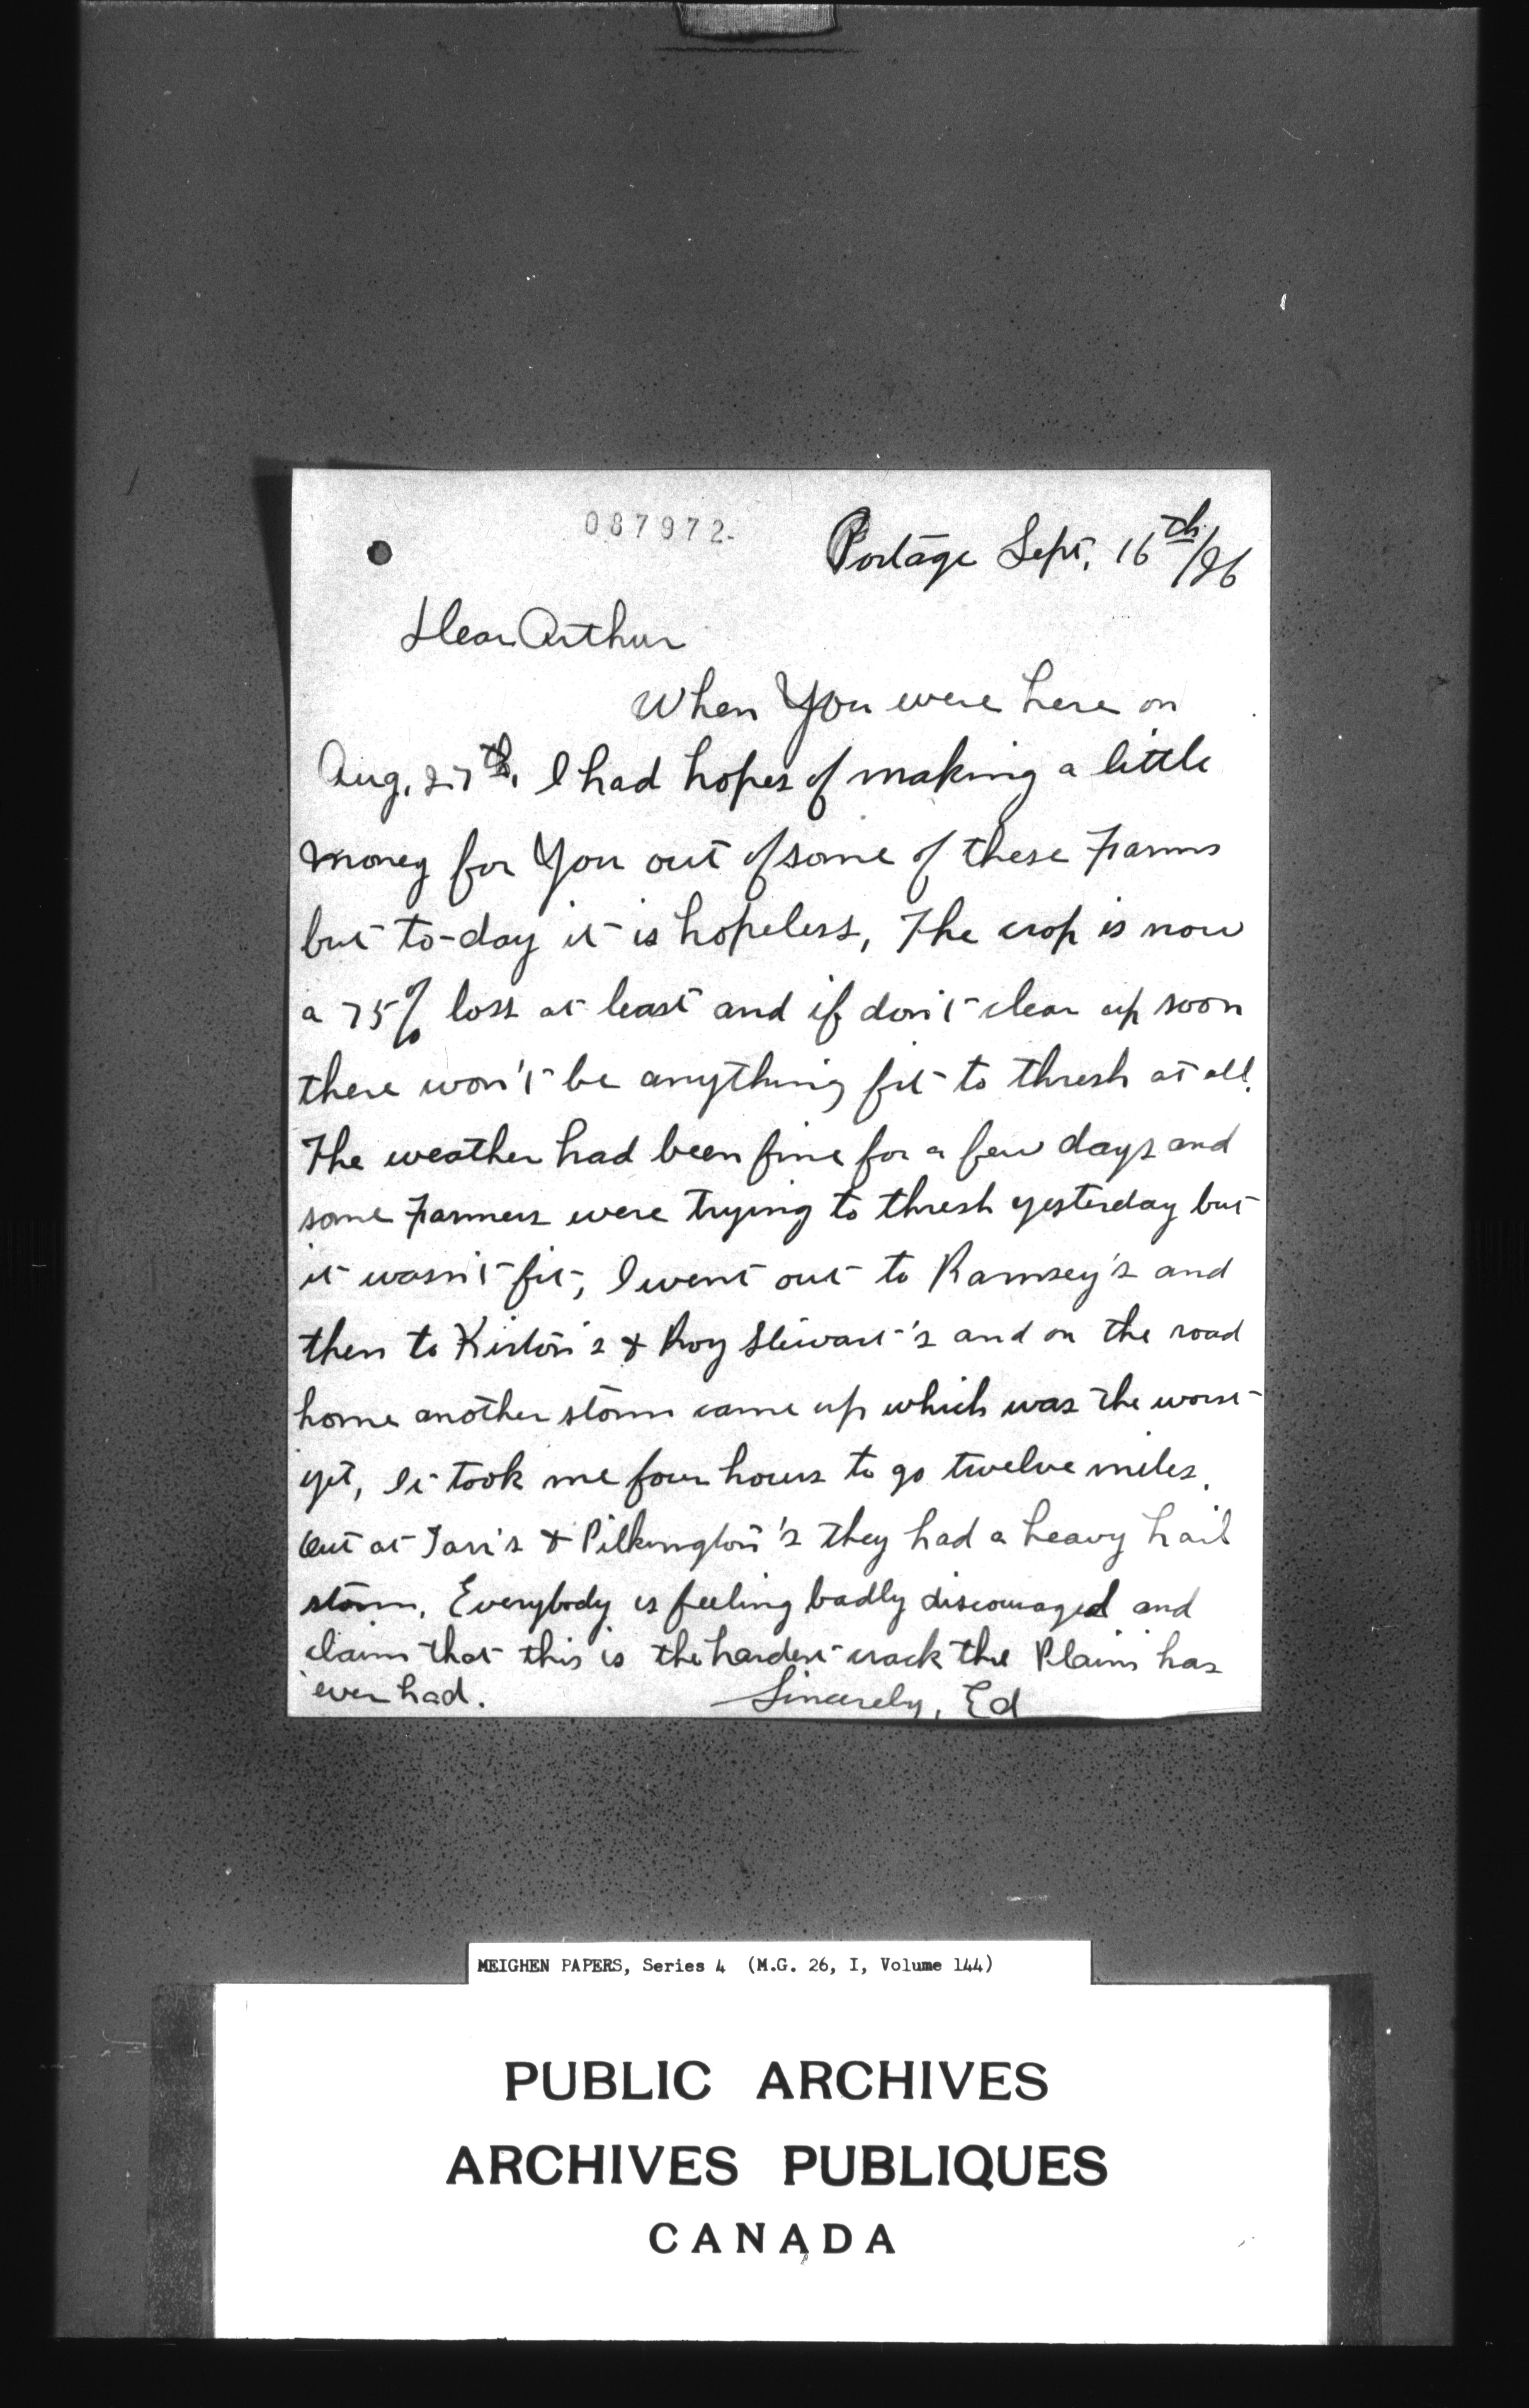 087972.
Portage Sept, 16th/26
Dear Arthur
When You were here on
Aug, 27th, I had hopes of making a little
money for You out of some of these Farms
but to-day it is hopeless, The crop is now
a 75% loss at least and if don't clear up soon
there won't be anything fit to thresh at all.
The weather had been fine for a few days and
some Farmers were trying to thresh yesterday but
it wasn't fit, I went out to Ramsey's and
then to Kirton's & Roy Stewart's and on the road
home another storm came up which was the worst
yet, It took me four hours to go twelve miles.
Out at Tarr's & Pilkington's they had a heavy hail
storm, Everybody is feeling badly discouraged and
claim that this is the hardest crack the Plains has
ever had. Sincerely, Ed
MEIGHEN PAPERS, Series 4 (M.G. 26, I, Volume 144)
PUBLIC ARCHIVES
ARCHIVES PUBLIQUES
CANADA